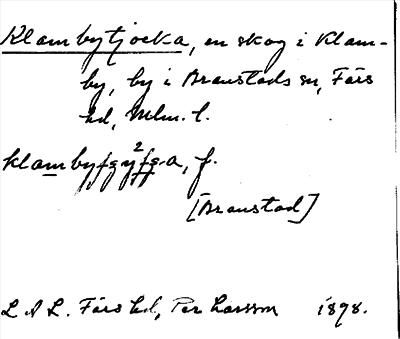 Klambytjocka, en skog i Klam-
by, by i Branstads sn, Färs
hd, Mlm. l.
f.
[Branstad]
L A L. Färs hd, Per Larsson 1898.